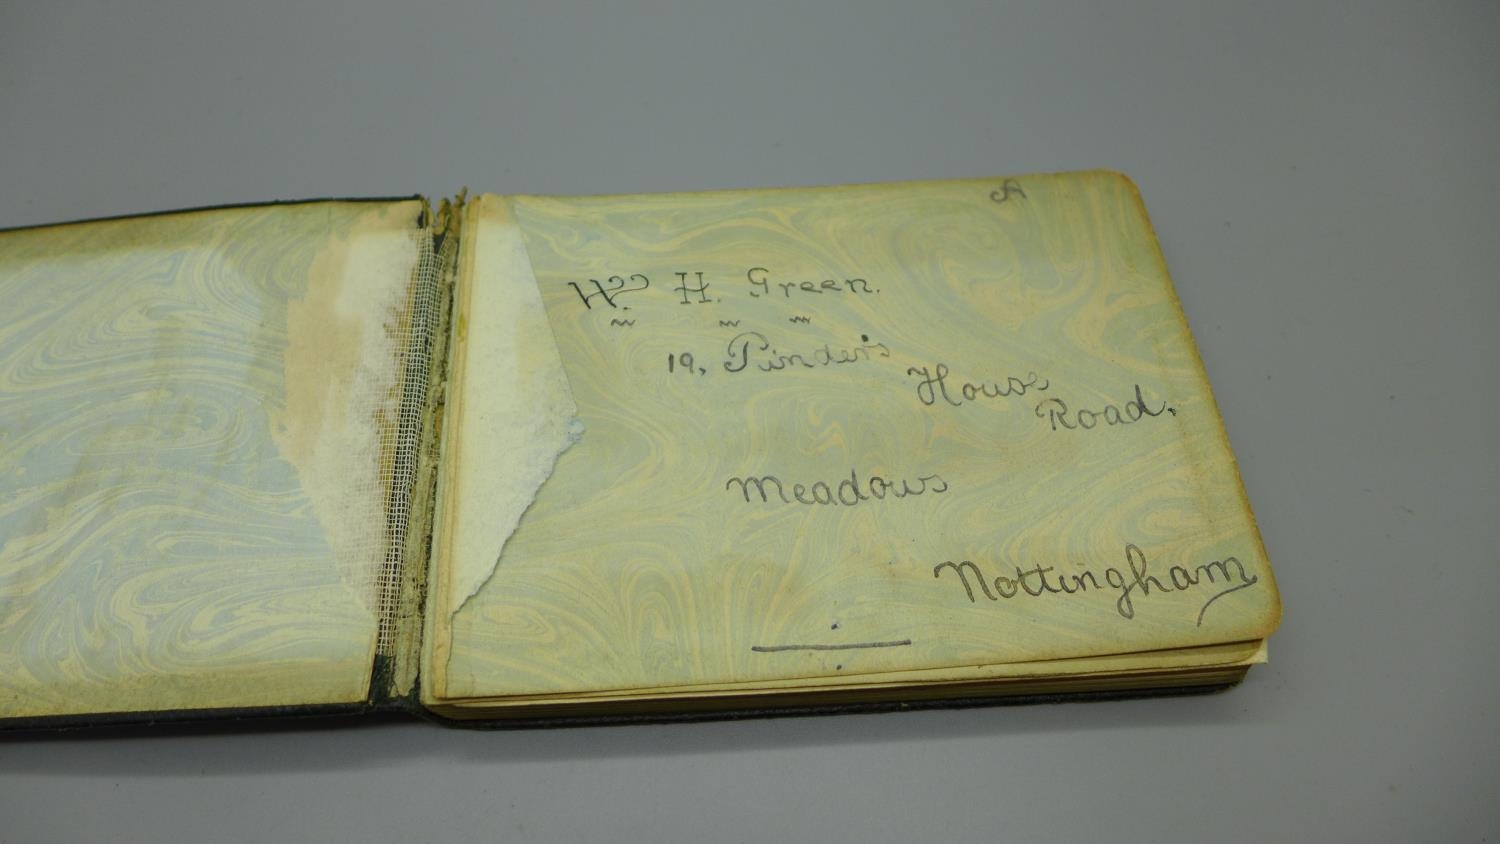 A
Wm H. Green.
19, Pinder's
House
Road.
Meadows
Nottingham